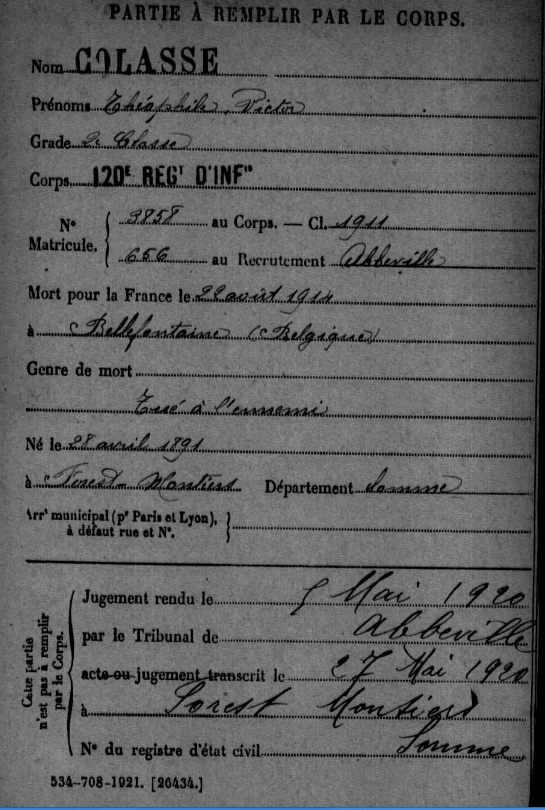 PARTIE À REMPLIR PAR LE CORPS.
Nom COLASSE
Prénoms Théophile, Victor
Grade 2e Classe
Corps 120E REGT D'INFie
No Matricule. { 3858 au Corps. — Cl. 1911
656 au Recrutement Abbeville
Mort pour la France le 22 août 1914
à Bellefontaine (Belgique)
Genre de mort
Tué à l'ennemi
Né le 28 avril 1891
à Forest-Montiers Département Somme
Arrt municipal (pr Paris et Lyon), à défaut rue et No. }
Cette partie n'est pas à remplir par le Corps.
Jugement rendu le 5 Mai 1920
par le Tribunal de Abbeville
acte ou jugement transcrit le 27 Mai 1920
à Forest Montiers
No du registre d'état civil Somme
534-708-1921. [26434.]